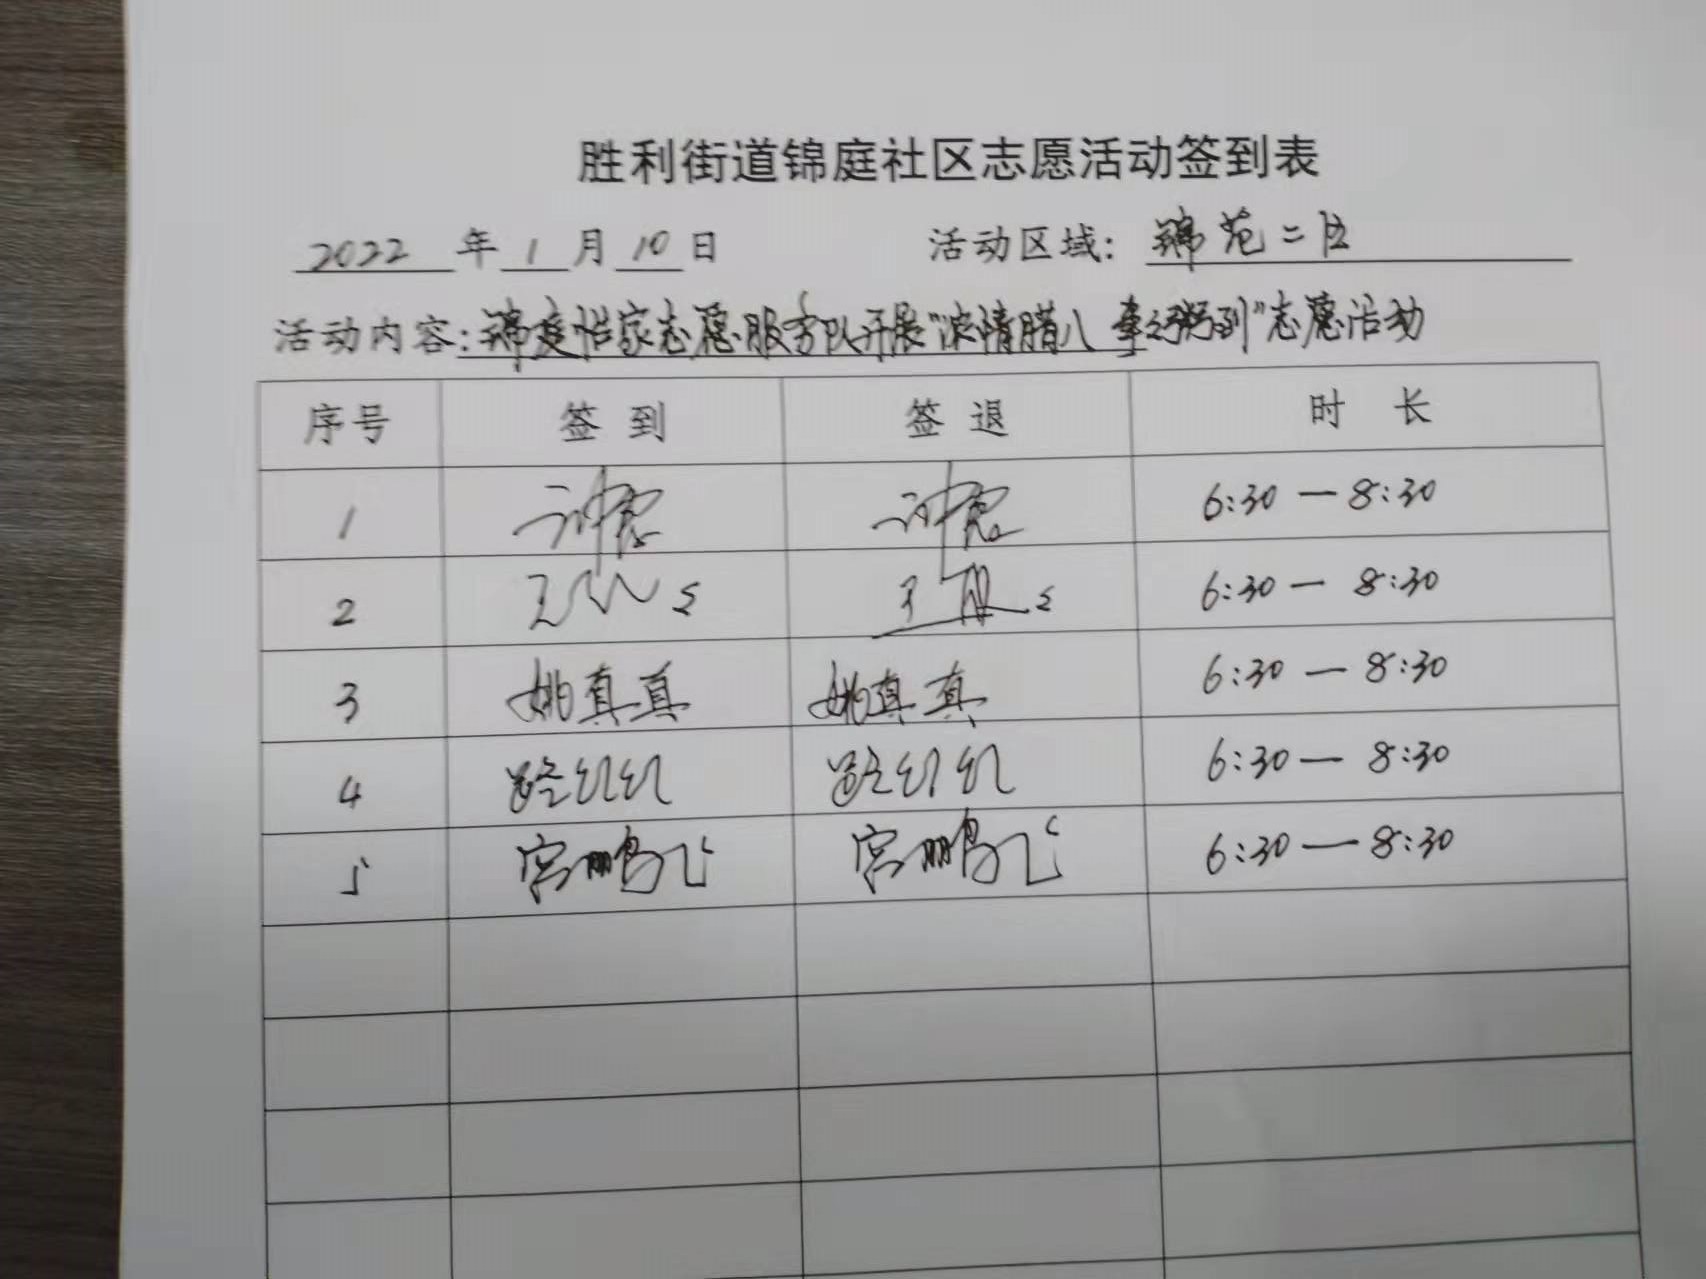 胜利街道锦庭社区志愿活动签到表
2022 年 1 月 10 日 活动区域: 锦苑二区
活动内容: 锦庭怡家志愿服务队开展"浓情腊八 "志愿活动
序号 签到 签退 时长
1 6:30 — 8:30
2 6:30 — 8:30
3 姚真真 姚真真 6:30 — 8:30
4 路红红 路红红 6:30 — 8:30
5 宫鹏飞 宫鹏飞 6:30 — 8:30